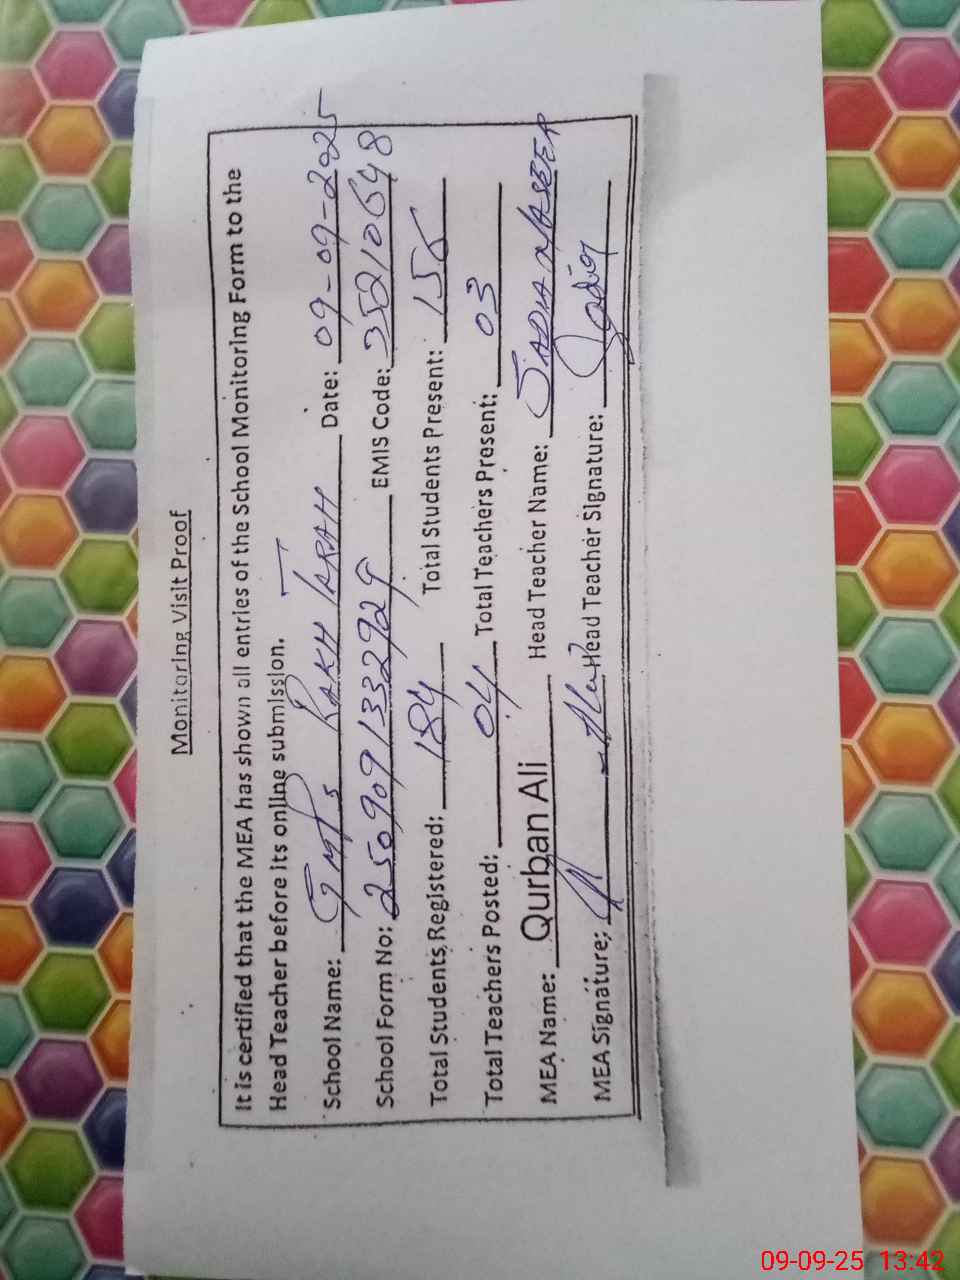 Monitoring Visit Proof
It is certified that the MEA has shown all entries of the School Monitoring Form to the
Head Teacher before its online submission.
School Name: GMPS RAKH TARAH Date: 09-09-2025
School Form No: 2509091332929 EMIS Code: 35210648
Total Students Registered: 184 Total Students Present: 156
Total Teachers Posted: 04 Total Teachers Present: 03
MEA Name: Qurban Ali Head Teacher Name: SADIA NASEER
MEA Signature: Head Teacher Signature: Sadia
09-09-25 13:42